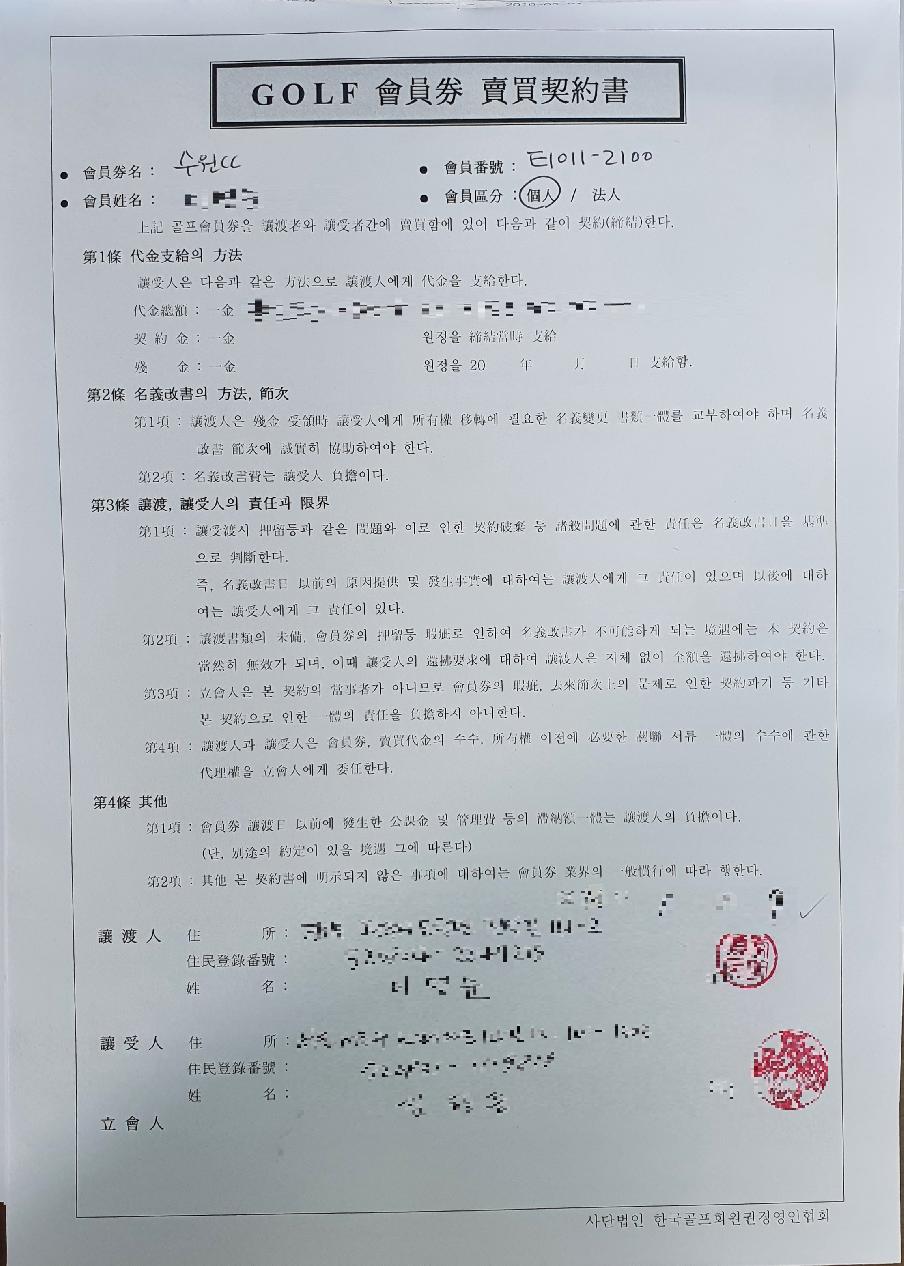 GOLF 會員券 賣買契約書
● 會員券名 : 수원CC
● 會員番號 : 티011-2100
● 會員姓名 :
● 會員區分 : 個人 / 法人
上記 골프會員券을 讓渡者와 讓受者간에 賣買함에 있어 다음과 같이 契約(締結)한다.
第1條 代金支給의 方法
讓受人은 다음과 같은 方法으로 讓渡人에게 代金을 支給한다.
代金總額 : 一金
契 約 金 : 一金 원정을 締結當時 支給
殘 金 : 一金 원정을 20 年 月 日 支給함.
第2條 名義改書의 方法, 節次
第1項 : 讓渡人은 殘金 受領時 讓受人에게 所有權 移轉에 필요한 名義變更 書類一體를 교부하여야 하며 名義
改書 節次에 誠實히 協助하여야 한다.
第2項 : 名義改書費는 讓受人 負擔이다.
第3條 讓渡, 讓受人의 責任과 限界
第1項 : 讓受渡시 押留등과 같은 問題와 이로 인한 契約破棄 등 諸般問題에 관한 責任은 名義改書日을 基準
으로 判斷한다.
즉, 名義改書日 以前의 原因提供 및 發生事實에 대하여는 讓渡人에게 그 責任이 있으며 以後에 대하
여는 讓受人에게 그 責任이 있다.
第2項 : 讓渡書類의 未備, 會員券의 押留등 瑕疵로 인하여 名義改書가 不可能하게 되는 境遇에는 本 契約은
當然히 無效가 되며, 이때 讓受人의 還拂要求에 대하여 讓渡人은 지체 없이 全額을 還拂하여야 한다.
第3項 : 立會人은 본 契約의 當事者가 아니므로 會員券의 瑕疵, 去來節次上의 문제로 인한 契約파기 등 기타
본 契約으로 인한 一體의 責任을 負擔하지 아니한다.
第4項 : 讓渡人과 讓受人은 會員券, 賣買代金의 수수, 所有權 이전에 必要한 關聯 서류 一體의 수수에 관한
代理權을 立會人에게 委任한다.
第4條 其他
第1項 : 會員券 讓渡日 以前에 發生한 公課金 및 管理費 등의 滯納額一體는 讓渡人의 負擔이다.
(단, 別途의 約定이 있을 境遇 그에 따른다)
第2項 : 其他 본 契約書에 明示되지 않은 事項에 대하여는 會員券 業界의 一般慣行에 따라 행한다.
讓渡人 住 所 :
住民登錄番號 :
姓 名 :
讓受人 住 所 :
住民登錄番號 :
姓 名 :
立會人
사단법인 한국골프회원권경영인협회